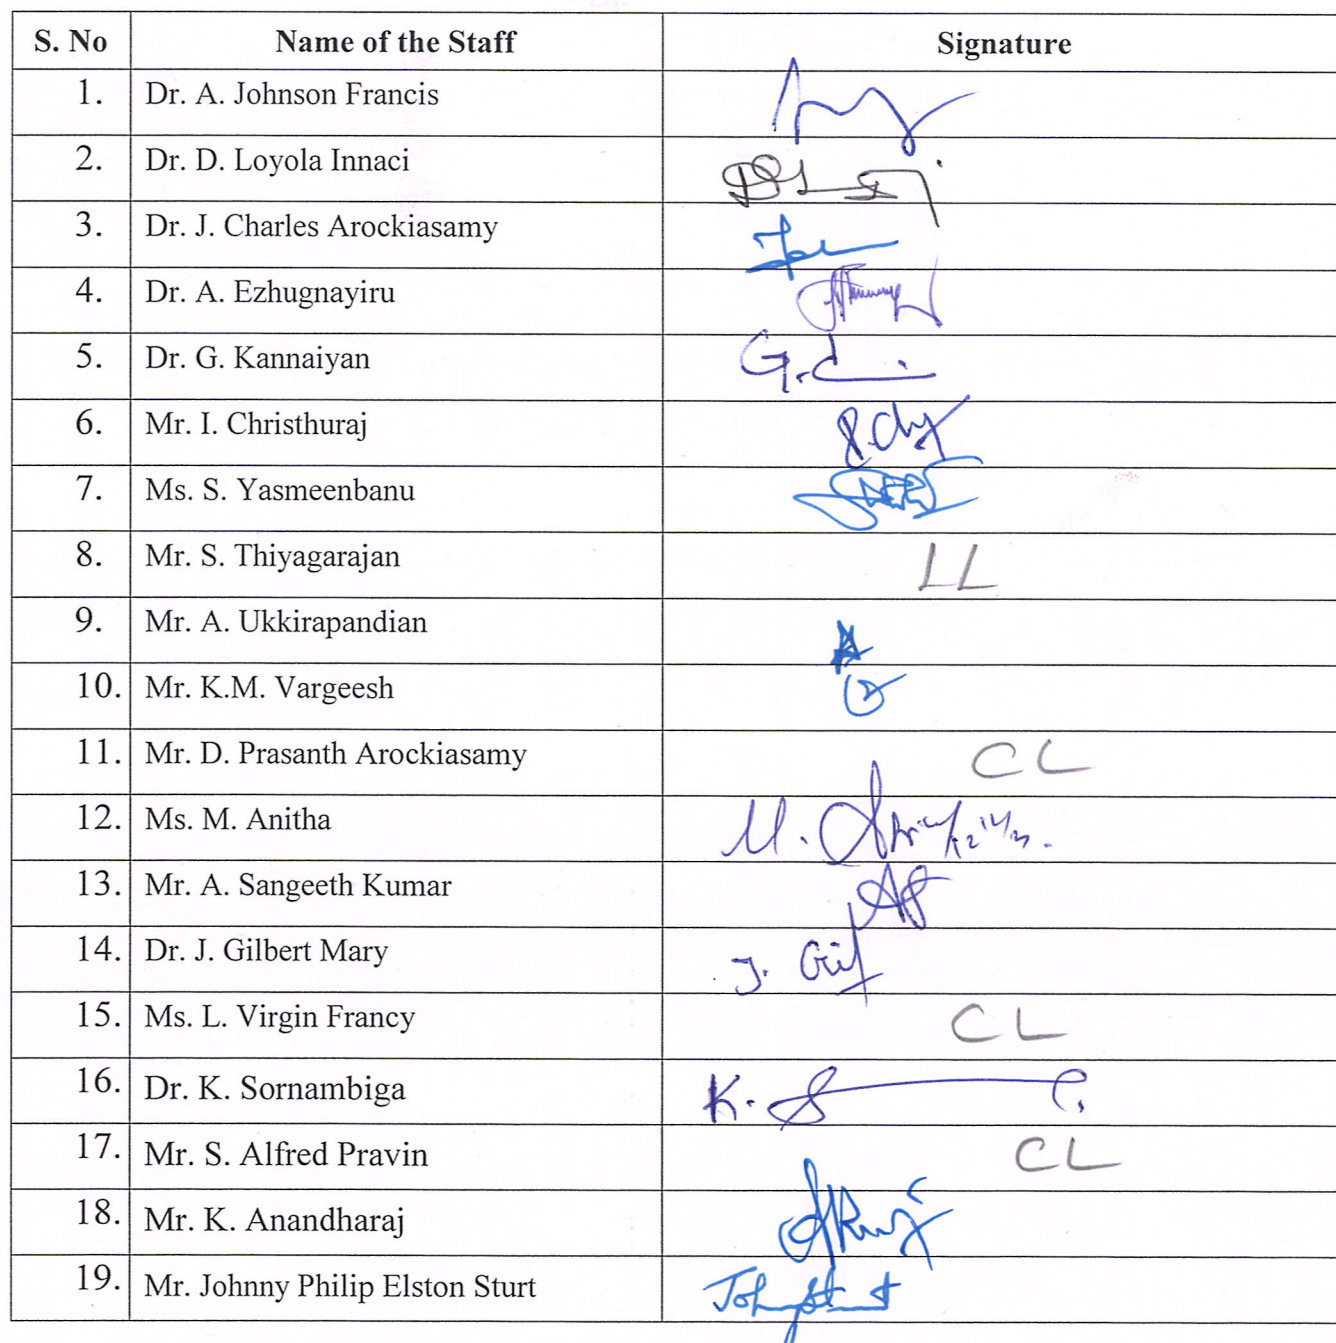 S. No Name of the Staff Signature
1. Dr. A. Johnson Francis
2. Dr. D. Loyola Innaci
3. Dr. J. Charles Arockiasamy
4. Dr. A. Ezhugnayiru
5. Dr. G. Kannaiyan G.
6. Mr. I. Christhuraj
7. Ms. S. Yasmeenbanu
8. Mr. S. Thiyagarajan LL
9. Mr. A. Ukkirapandian
10. Mr. K.M. Vargeesh
11. Mr. D. Prasanth Arockiasamy CL
12. Ms. M. Anitha M.
13. Mr. A. Sangeeth Kumar
14. Dr. J. Gilbert Mary J.
15. Ms. L. Virgin Francy CL
16. Dr. K. Sornambiga K. S
17. Mr. S. Alfred Pravin CL
18. Mr. K. Anandharaj
19. Mr. Johnny Philip Elston Sturt